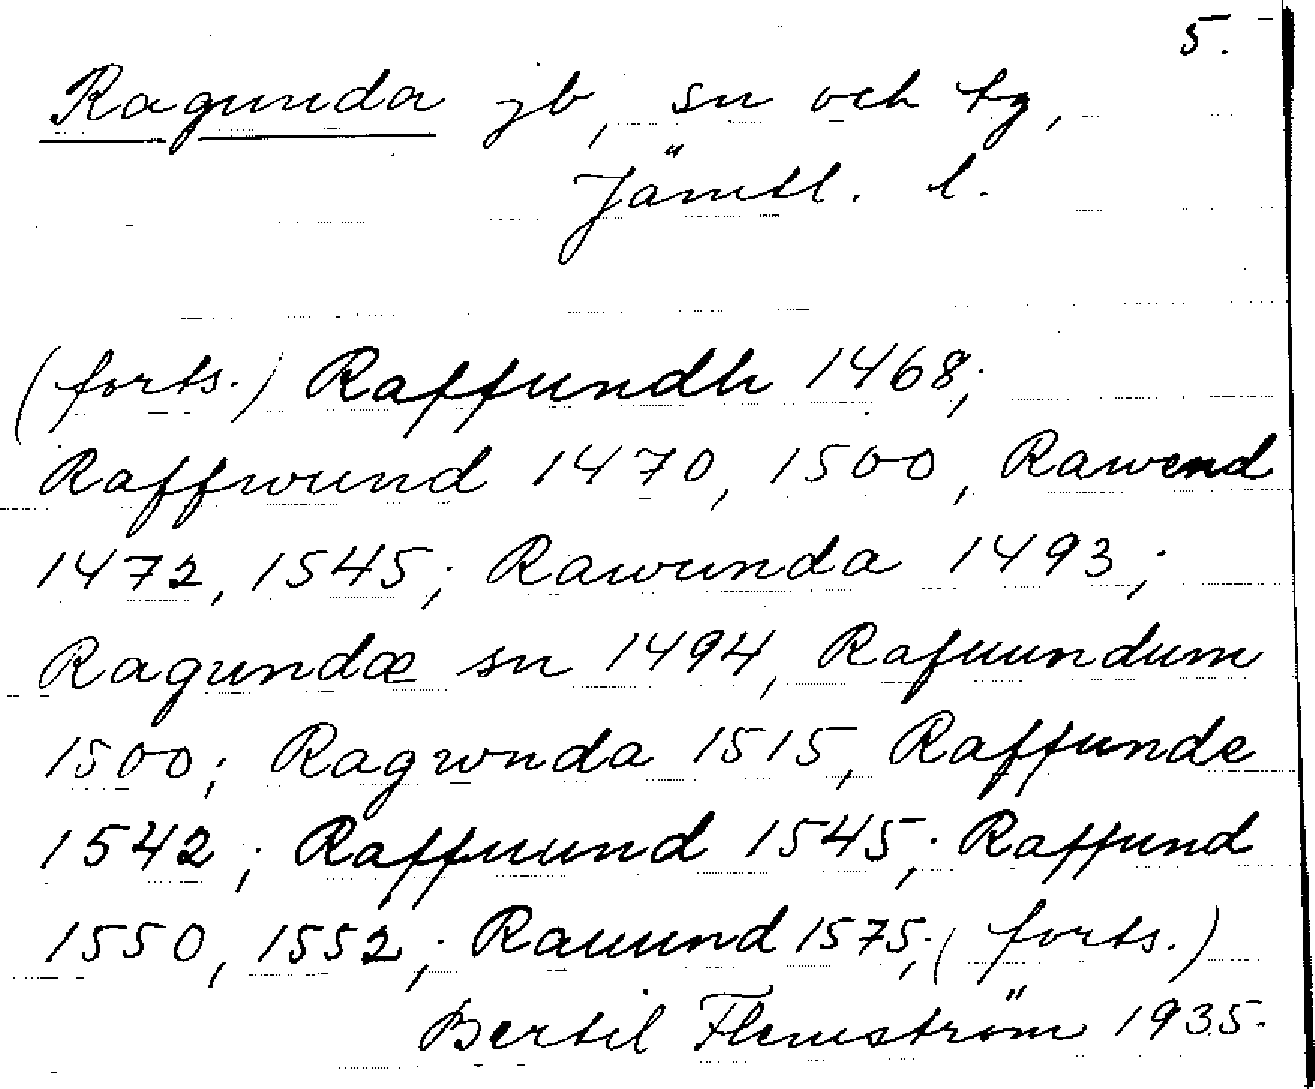 5.
Ragunda jb, sn och tg,
Jämtl. l.
(forts.) Raffundh 1468;
Raffwund 1470, 1500, Rawend
1472, 1545; Rawunda 1493;
Ragundæ sn 1494, Rafuundum
1500; Ragwnda 1515, Raffunde
1542; Raffuund 1545; Raffund
1550, 1552; Rauund 1575; (forts.)
Bertil Flemström 1935.